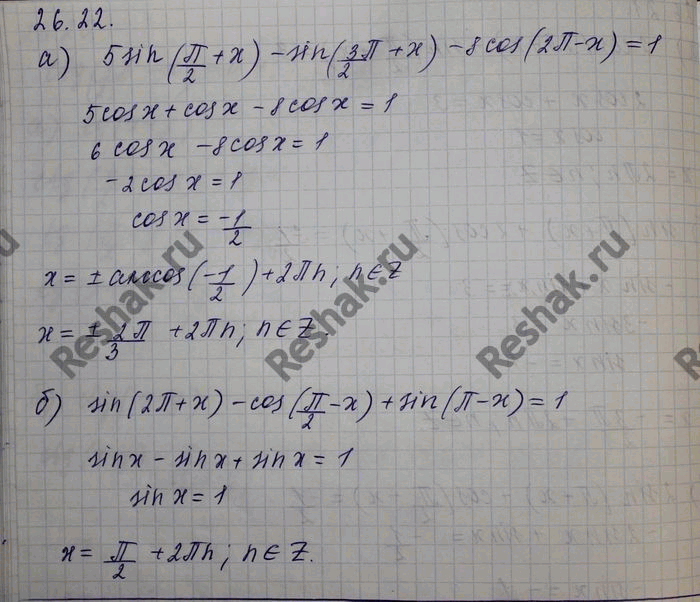 26.22.
а) 5sin(π/2+x) -sin(3π/2+x) -8cos(2π-x)=1
5cosx+cosx -8cosx=1
6cosx -8cosx=1
-2cosx=1
cosx=-1/2
x=±arccos(-1/2)+2πn; n∈Z
x=±2π/3 +2πn; n∈Z.
б) sin(2π+x) -cos(π/2-x)+sin(π-x)=1
sinx -sinx+sinx=1
sinx=1
x=π/2 +2πn; n∈Z.
Reshak.ru
Reshak.ru
Reshak.ru
Reshak.ru